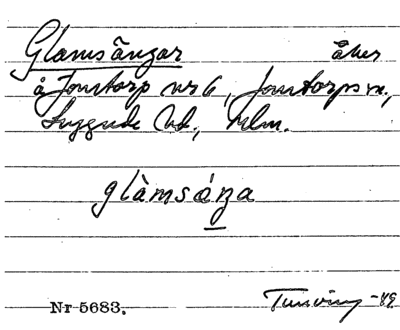 Glamsängar åker
å Jonstorp nr 6, Jonstorps sn.,
Luggude hd., Mlm.
glàmsáŋa
Nr 5683.
-49